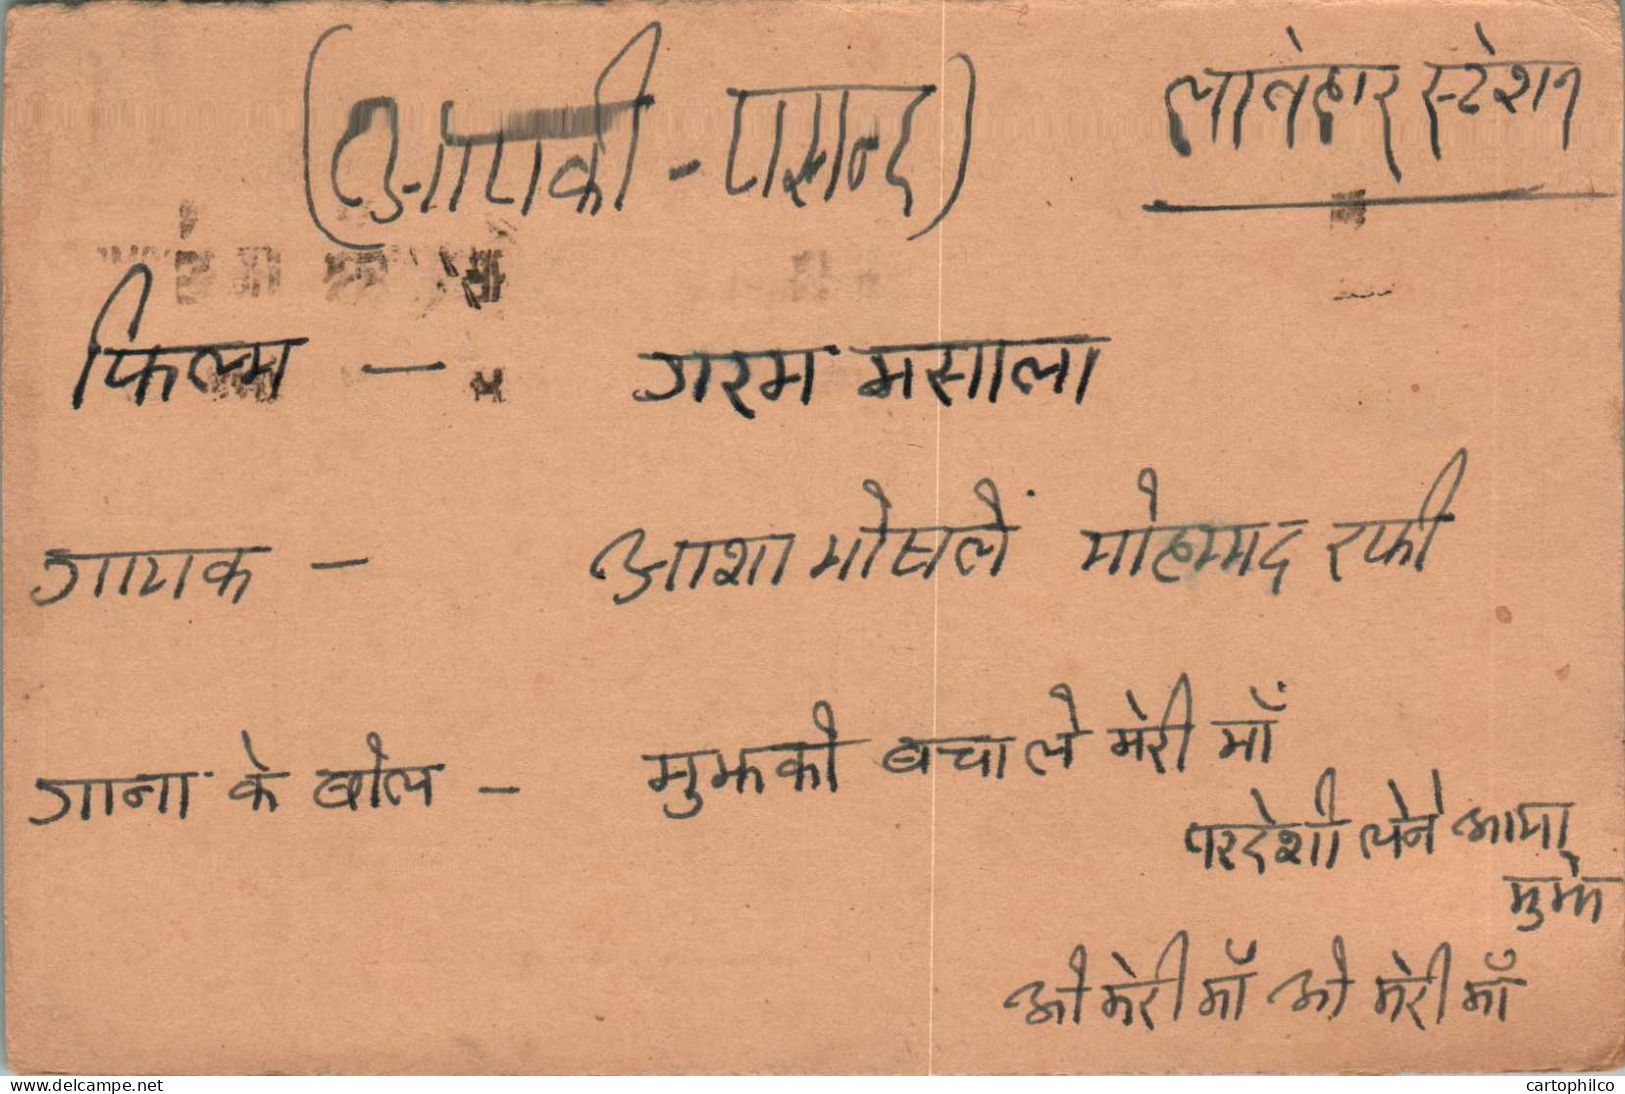 (आपकी - पसन्द) लातेहार स्टेशन
फिल्म - गरम मसाला
गायक - आशा भोसलें मोहम्मद रफी
गाना के बोल - मुझको बचा ले मेरी माँ
परदेशी लेने आया
मुझे
ओ मेरी माँ ओ मेरी माँ
delcampe.net
cartophilco